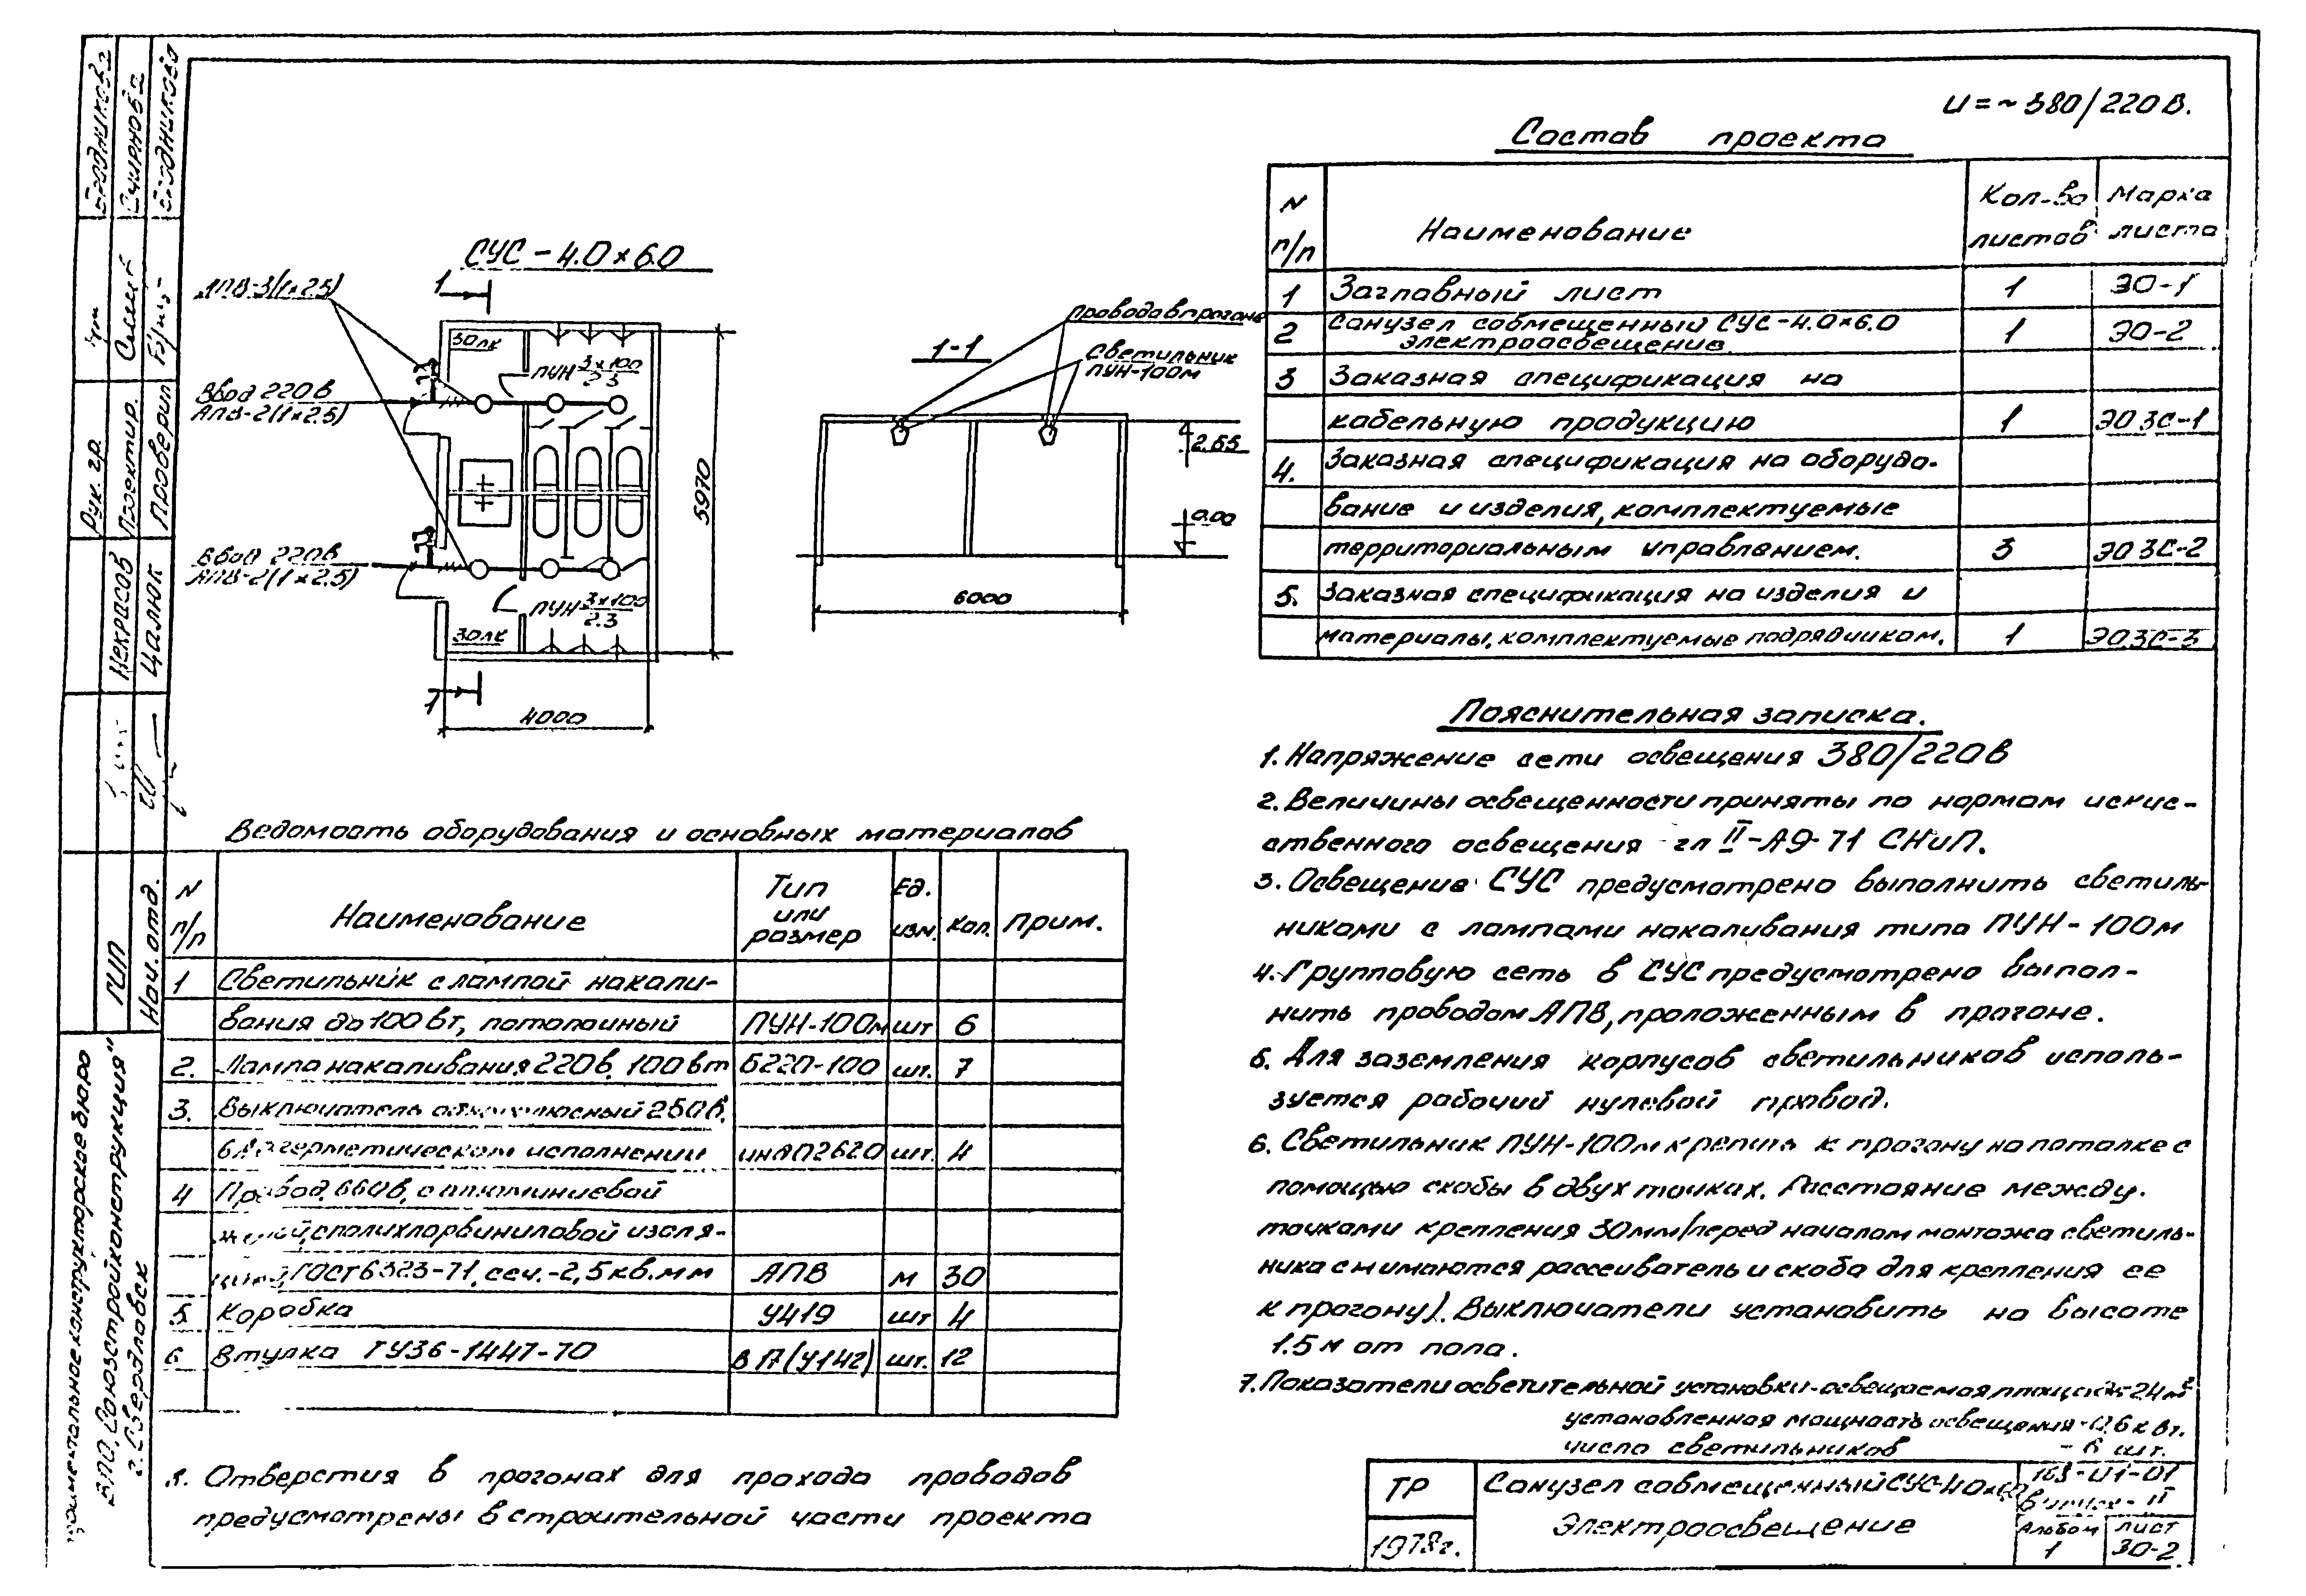 U = ~ 380/220 В.
Состав проекта
N п/п
Наименование
Кол-во листов
Марка листа
1 Заглавный лист 1 ЭО-1
2 Санузел совмещенный СУС-4.0×6.0 электроосвещение 1 ЭО-2
3 Заказная спецификация на
кабельную продукцию 1 ЭО ЗС-1
4. Заказная спецификация на оборудо-
вание и изделия, комплектуемые
территориальным управлением. 3 ЭО ЗС-2
5. Заказная спецификация на изделия и
материалы, комплектуемые подрядчиком. 1 ЭО.ЗС-3
СУС - 4.0×6.0
АПВ-3(1×2.5)
1
30лк
ПУН 3×100/2.3
Ввод 220В
АПВ-2(1×2.5)
5970
Ввод 220В
АПВ-2(1×2.5)
ПУН 3×100/2.3
30лк
1
4000
1-1
Провода в прогоне
Светильник
ПУН-100м
2.65
0.00
6000
Пояснительная записка.
1. Напряжение сети освещения 380/220В
2. Величины освещенности приняты по нормам искус-
ственного освещения - гл II-А9-71 СНиП.
3. Освещение СУС предусмотрено выполнить светиль-
никами с лампами накаливания типа ПУН-100м
4. Групповую сеть в СУС предусмотрено выпол-
нить проводом АПВ, проложенным в прогоне.
5. Для заземления корпусов светильников исполь-
зуется рабочий нулевой провод.
6. Светильник ПУН-100м крепить к прогону на потолке с
помощью скобы в двух точках. Расстояние между
точками крепления 30мм/перед началом монтажа светиль-
ника снимаются рассеиватель и скоба для крепления ее
к прогону). Выключатели установить на высоте
1.5 м от пола.
7. Показатели осветительной установки-освещаемая площадь-24м²
установленная мощность освещения-0,6 кВт.
число светильников - 6 шт.
Ведомость оборудования и основных материалов
N п/п
Наименование
Тип или размер
Ед. изм.
Кол.
Прим.
1 Светильник с лампой накали-
вания до 100 вт, потолочный ПУН-100м шт 6
2. Лампа накаливания 220в, 100 вт Б220-100 шт. 7
3. Выключатель 250в,
герметическом исполнении шт. 4
4 Провод, 660в, с алюминиевой
жилой, с полихлорвиниловой изоля-
цией, ГОСТ 6323-71, сеч.-2,5 кв.мм АПВ м 30
5 Коробка У419 шт 4
6 Втулка ТУ36-1447-70 В 17 (У142) шт. 12
8. Отверстия в прогонах для прохода проводов
предусмотрены в строительной части проекта
ТР
1978г.
Санузел совмещенный СУС-4.0×6.0
Электроосвещение
Альбом 1
Лист ЭО-2
Рук. гр.
Проектир.
Проверил
Смирнова
ГИП
Нач. отд.
Некрасов
Цалюк
конструкторское бюро
ВПО „Союзстройконструкция"
г. Свердловск